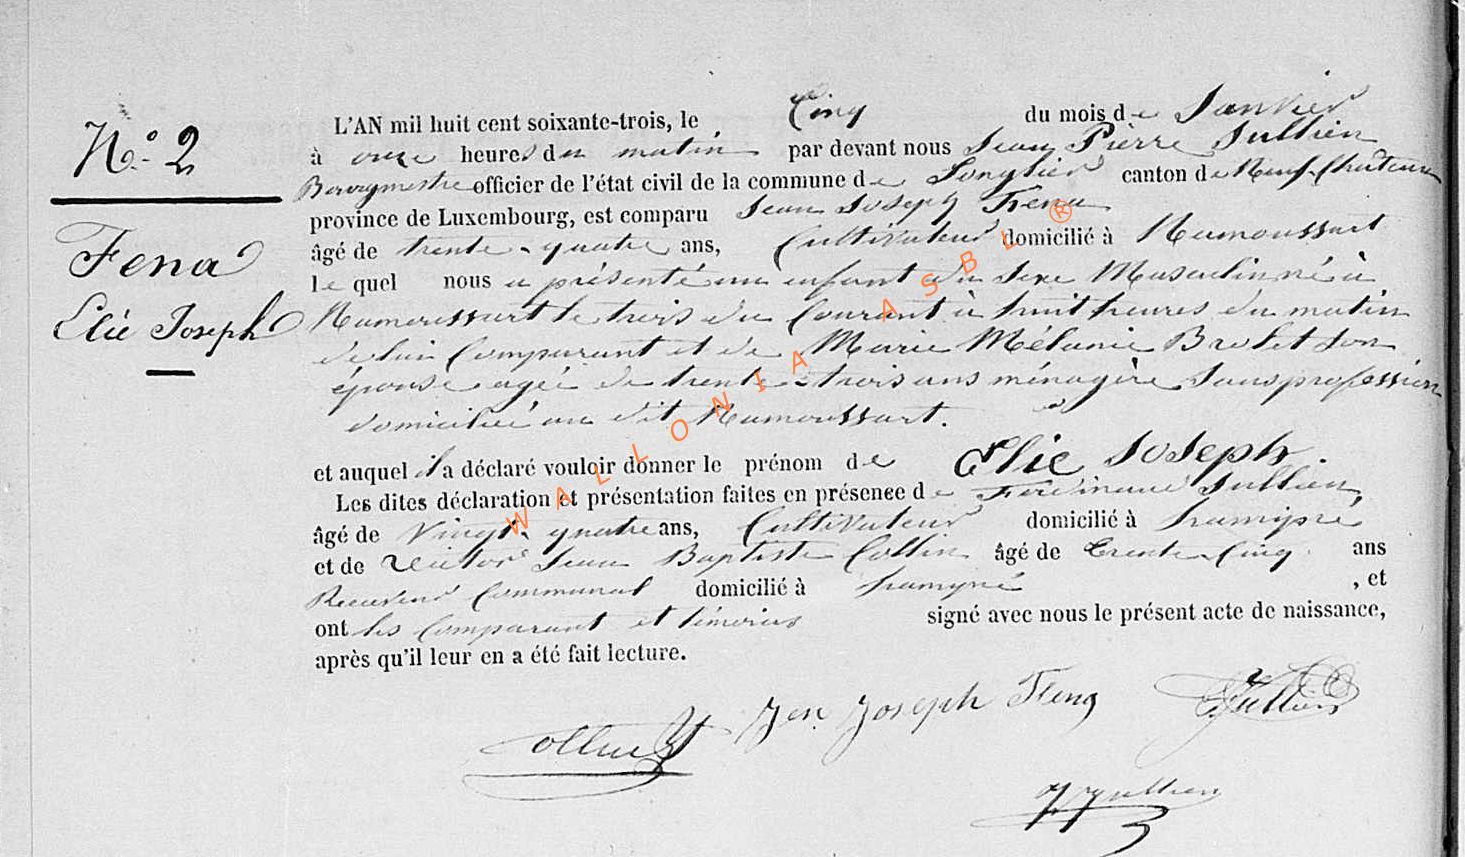 No. 2
Fena
Elie Joseph
L'AN mil huit cent soixante-trois, le Cinq du mois de Janvier
à onze heures du matin par devant nous Jean Pierre Jullien
Bourgmestre officier de l'état civil de la commune de Longlier canton de Neuf-Château
province de Luxembourg, est comparu Jean Joseph Fena
âgé de trente-quatre ans, Cultivateur domicilié à Namoussart
le quel nous a présenté un enfant du sexe Masculin né à
Namoussart le trois du Courant à huit heures du matin
de lui Comparant et de Marie Mélanie Brolet son
épouse agée de trente-trois ans ménagère sans profession
domiciliée au dit Namoussart.
et auquel il a déclaré vouloir donner le prénom de Elie Joseph.
Les dites déclaration et présentation faites en présence de Ferdinand Jullien,
âgé de Vingt-quatre ans, Cultivateur domicilié à hamipré
et de Victor Jean Baptiste Collin âgé de trente-Cinq ans
Receveur Communal domicilié à hamipré , et
ont les Comparant et témoins signé avec nous le présent acte de naissance,
après qu'il leur en a été fait lecture.
Jen Joseph Fena
Jullien
Collin
Jullien
WALLONIA ASBL ®